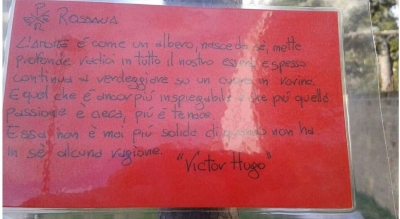 PER
Rossana
L'amore è come un albero, nasce da sé, mette
profonde radici in tutto il nostro essere e spesso
continua a verdeggiare su un cuore in rovina.
E quel che è ancor più inspiegabile è che più quella
passione è cieca, più è tenace.
Essa non è mai più solida di quando non ha
in sé alcuna ragione.
"Victor Hugo"